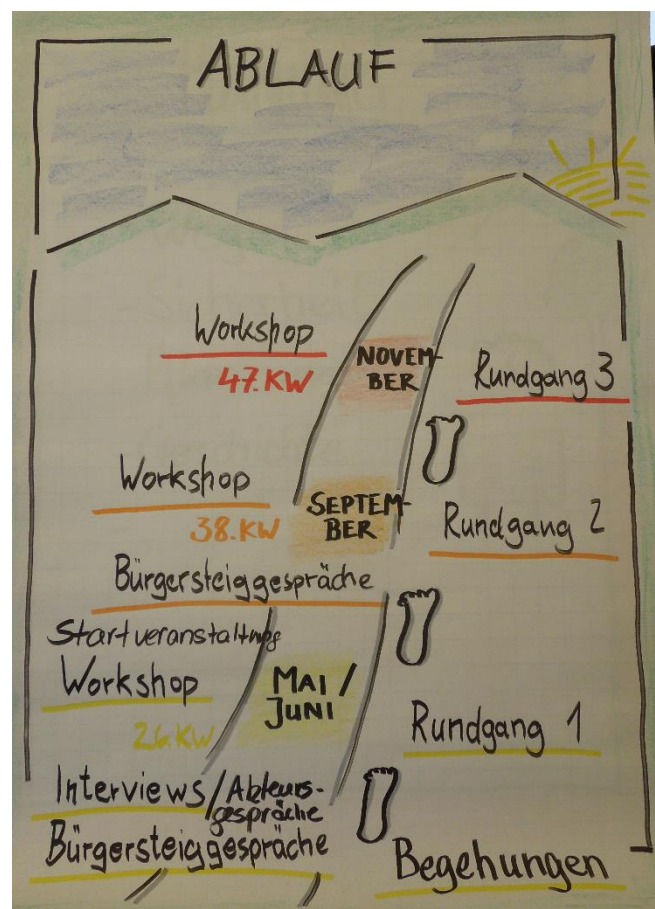 ABLAUF
Workshop
47. KW
NOVEM-
BER
Rundgang 3
Workshop
38. KW
SEPTEM-
BER
Rundgang 2
Bürgersteiggespräche
Startveranstaltung
Workshop
26. KW
MAI /
JUNI
Rundgang 1
Interviews / Akteurs-
gespräche
Bürgersteiggespräche
Begehungen